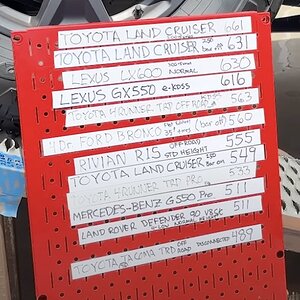 TOYOTA LAND CRUISER 661
TOYOTA LAND CRUISER bar off 631
LEXUS LX600 NORMAL 630
LEXUS GX550 e-KDSS 616
TOYOTA 4RUNNER TRD OFF ROAD 563
4Dr FORD BRONCO 35" tires (bar off) 560
RIVIAN R1S OFF ROAD STD HEIGHT 555
TOYOTA LAND CRUISER bar on 549
TOYOTA 4RUNNER TRD PRO 533
MERCEDES-BENZ G550 Pro 511
LAND ROVER DEFENDER 90 V8 511
TOYOTA TACOMA TRD OFF ROAD DISCONNECTED 489